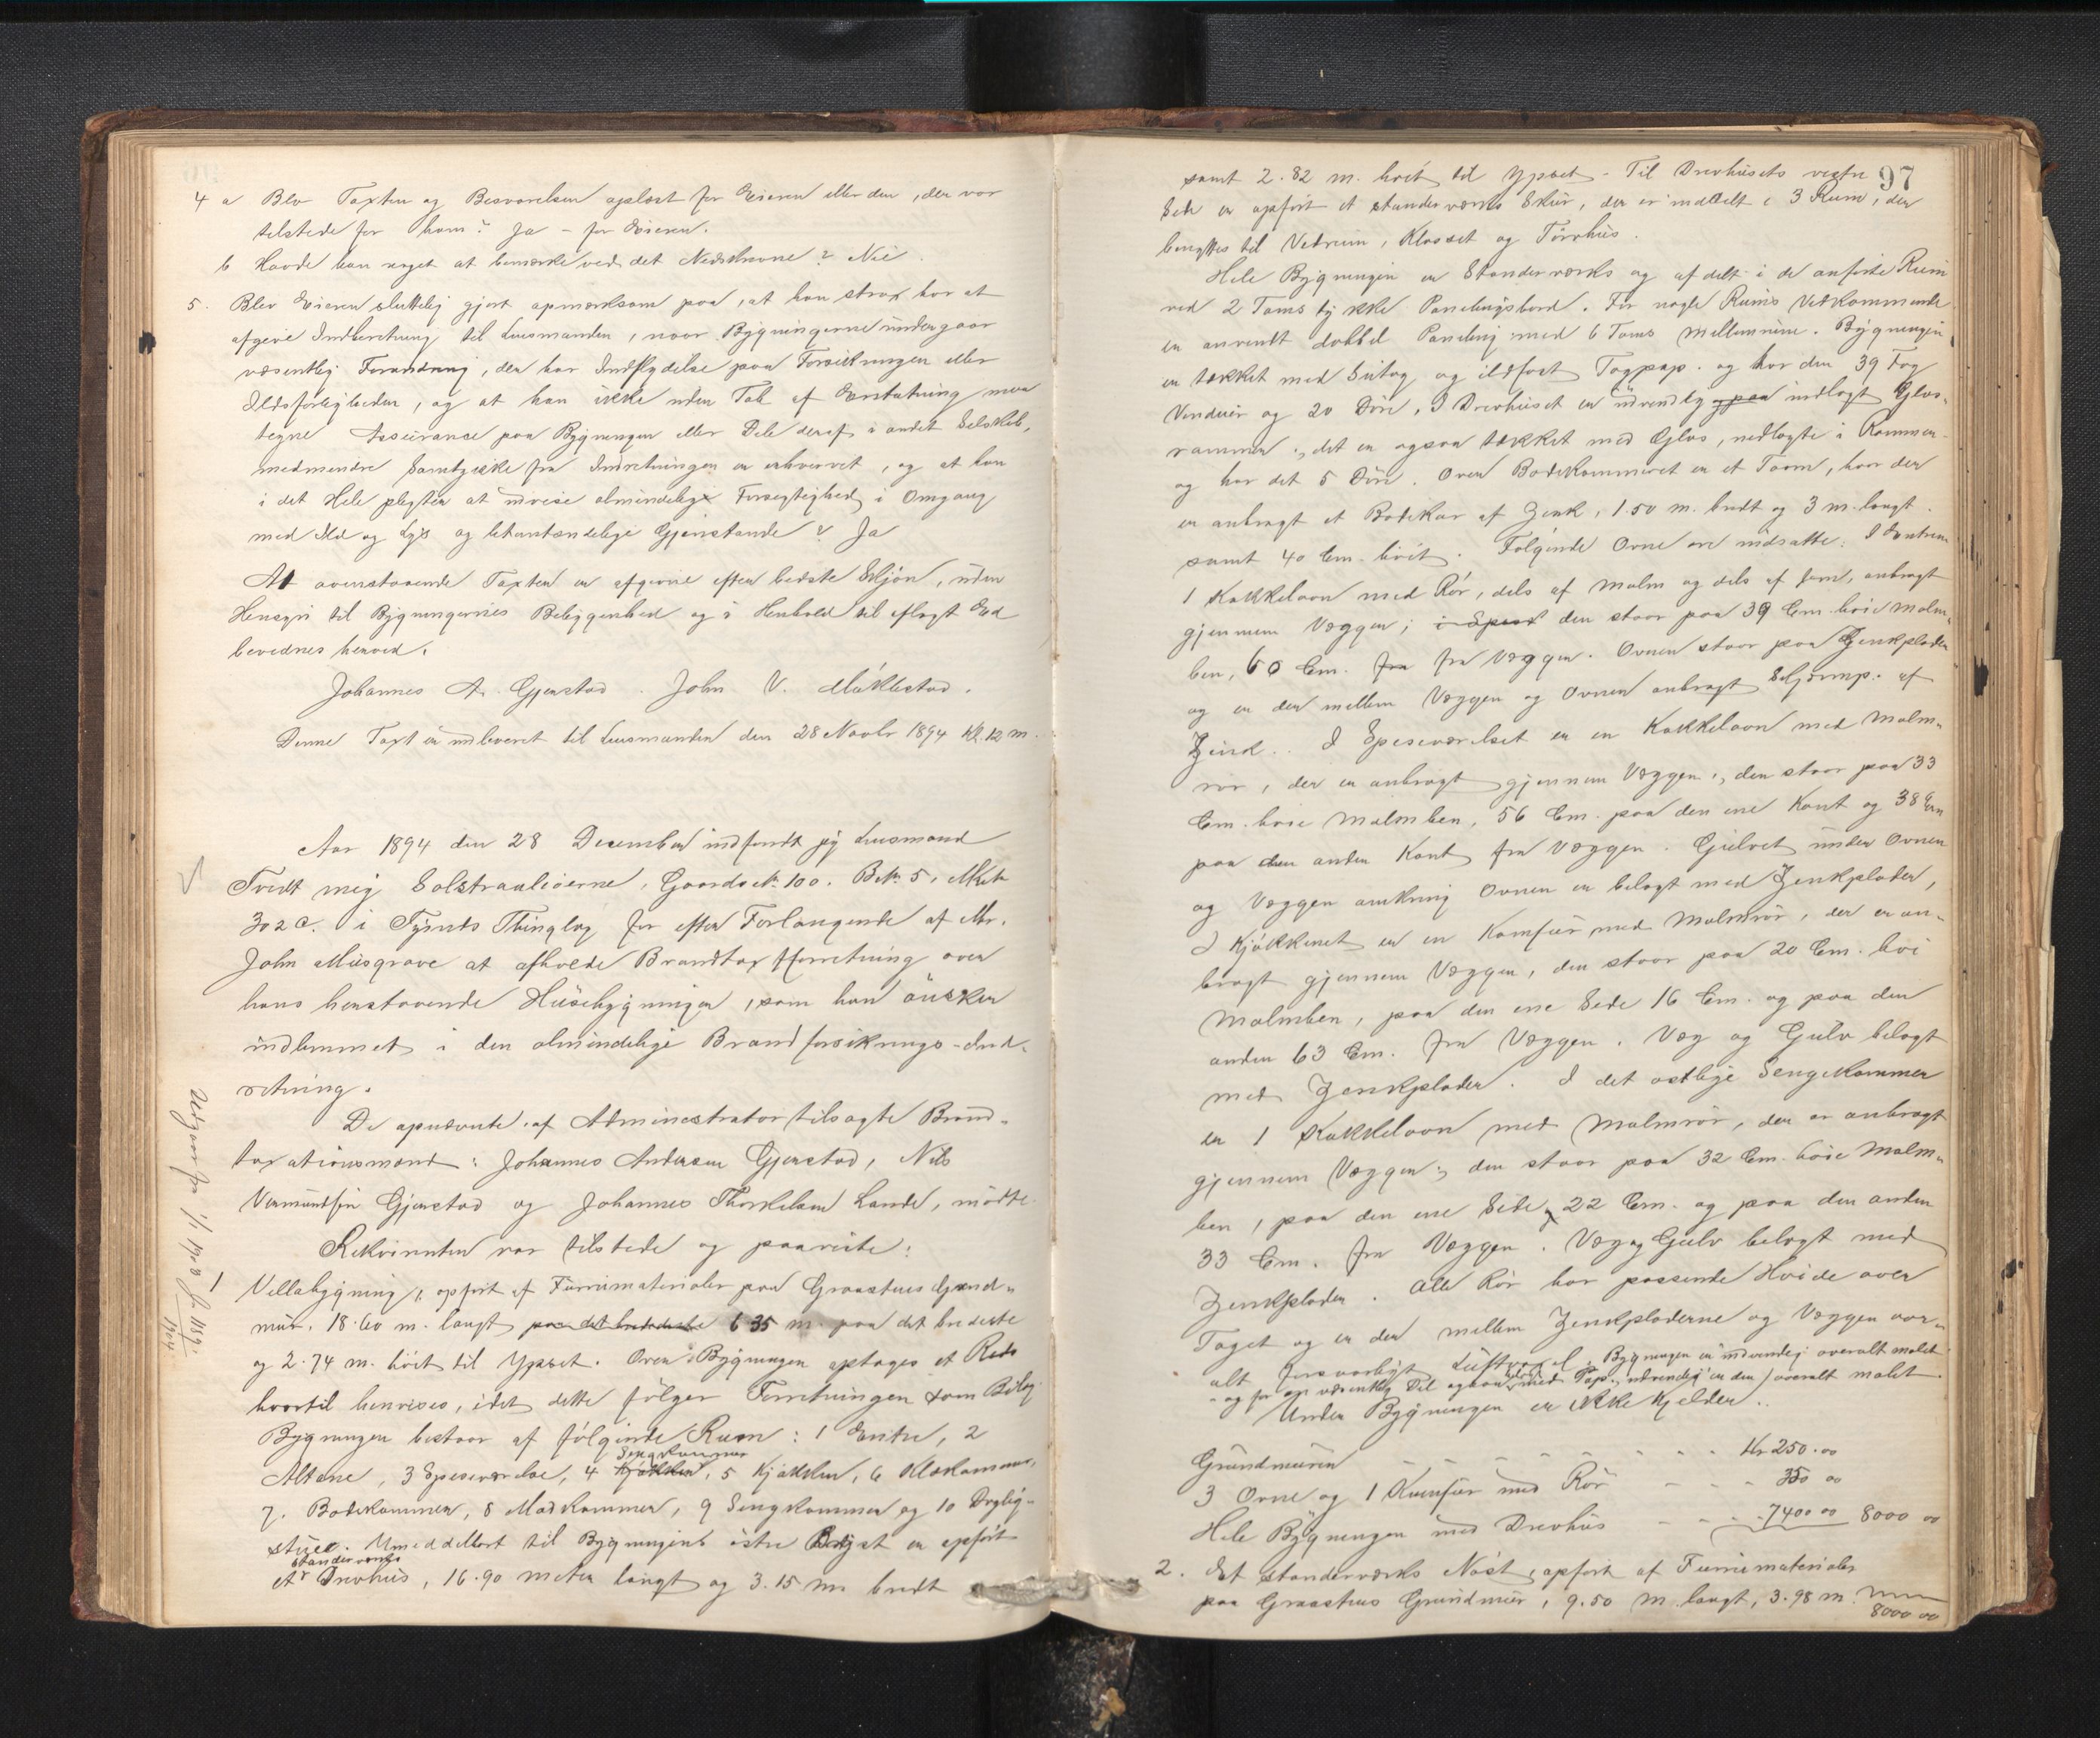 4 a Blev Taxten og Besvarelsen oplæst for Eieren eller den, der var
tilstede for ham? Ja - for Eieren.
b Havde han noget at bemærke ved det Nedskrevne? Nei.
5. Blev Eieren sluttelig gjort opmærksom paa, at han strax bør at
afgive Indberetning til Lensmanden, naar Bygningerne undergaar
væsentlig Forandring, der har Indflydelse paa Forsikringen eller
Ildsfarligheden, og at han ikke uden Tab af Erstatning maa
tegne Assurance paa Bygningen eller Dele deraf i andet Selskab,
medmindre Samtykke fra Indretningen er erhvervet, og at han
i det Hele pligter at udvise almindelig Forsigtighed i Omgang
med Ild og Lys og letantændelige Gjenstande? Ja
At ovenstaaende Taxter er afgivne efter bedste Skjøn, uden
Hensyn til Bygningernes Beliggenhed og i Henhold til aflagt Ed
bevidnes herved.
Johannes A. Gjerstad. John V. Møklestad.
Denne Taxt er indleveret til Lensmanden den 28 Novbr 1894 Kl. 12 m.
Aar 1894 den 28 December indfandt jeg Lensmand
Tvedt mig Solstraaleøerne, Gaards No. 100. B.No. 5, Matr.
302 c. i Tysnes Thinglag for efter Forlangende af Mr.
John Musgrave at afholde Brandtaxtforretning over
hans henstaaende Husebygninger, som han ønsker
indlemmet i den almindelige Brandforsikrings-Ind-
retning.
De opnævnte af Administrator tilsagte Brand-
taxationsmænd: Johannes Andersen Gjerstad, Nils
Vermundsen Gjerstad og Johannes Thorkelsen Lande, mødte.
Rekvirenten var tilstede og paaviste:
1 Villabygning, opført af Furrumaterialer paa Graastens Grund-
mur. 18.60 m. langt paa det bredeste 6 35 m. paa det bredeste
og 2.74 m. høit til Ypset. Over Bygningen optages et Rids
hvortil henvises, idet dette følger Forretningen som Bilag
Bygningen bestaar af følgende Rum: 1 Entre, 2
Sengekammer
Altane, 3 Spiseværelse, 4 Kjøkken, 5 Kjøkken, 6 Klækammer,
7. Badekammer, 8 Madkammer, 9 Sengekammer og 10 Daglig-
stue. Umeddelbart til Bygningens østre Bryst er opført
standerværks
et Drevhus, 16.90 meter langt og 3.15 m. bredt
Udgaar fra 1/1 1903
97
samt 2.82 m. høit til Ypset. - Til Drevhusets vestre
Side er opført et standerværks Skur, der er inddelt i 3 Rum, der
benyttes til Vedrum, Kloset og Tørrhus.
Hele Bygningen er Standerværks og afdelt i de anførte Rum
ved 2 Toms tykke Panelingsbord. For nogle Rums Vedkommende
er anvendt dobbel Paneling med 6 Toms Mellemrum. Bygningen
er tækket med Sutag og ildfast Tagpap. og har den 39 Fag
Vinduer og 20 Døre. I Drevhuset er udvendig ogsaa indlagt Glas-
rammer, det er ogsaa tækket med Glas, nedlagte i Rammer
og har det 5 Døre. Over Badekammeret er et Taarn, hvor der
er anbragt et Badekar af Zink, 1.50 m. bredt og 3 m. langt
samt 40 Cm. høit. Følgende Ovne ere indsatte: I Entreen
1 Kakkelovn med Rør, dels af Malm og dels af Jern, anbragt
gjennem Væggen; i Spise den staar paa 39 Cm. høie Malm-
ben, 60 Cm. fra fra Væggen. Ovnen staar paa Zinkplader
og er der mellem Væggen og Ovnen anbragt Skjermp. af
Zink. I Spiseværelset er en Kakkelovn med Malm-
rør, der er anbragt gjennem Væggen, den staar paa 33
Cm. høie Malmben, 56 Cm. paa den ene Kant og 38 Cm
paa den anden Kant fra Væggen. Gulvet under Ovnen
og Væggen omkring Ovnen er belagt med Zinkplader,
I Kjøkkenet er en Komfur med Malmrør, der er an-
bragt gjennem Væggen, den staar paa 20 Cm. høi
Malmben, paa den ene Side 16 Cm. og paa den
anden 63 Cm. fra Væggen. Væg og Gulv belagt
med Zinkplader. I det østlige Sengekammer
er 1 Kakkelovn med Malmrør, der er anbragt
gjennem Væggen; den staar paa 32 Cm. høie Malm-
ben, paa den ene Side 22 Cm. og paa den anden
33 Cm. fra Væggen. Væg og Gulv belagt med
Zinkplader. Alle Rør har passende Høide over
Taget og er der mellem Zinkpladerne og Væggen over-
alt forsvarligt Luftrum. Bygningen er indvendig overalt malet
og for en væsentlig Del ogsaa med Pap. udvendig er den overalt malet.
Under Bygningen er ikke Kjelder.
Grundmuren - - - - Kr 250.00
3 Ovne og 1 Komfur med Rør - - - 350 00
Hele Bygningen med Drevhus - - - 7400 00 8000 00
2. Et standerværks Nøst, opført af Furrumaterialer
paa Graastens Grundmur, 9.50 m. langt, 3.98 m.
8000 00